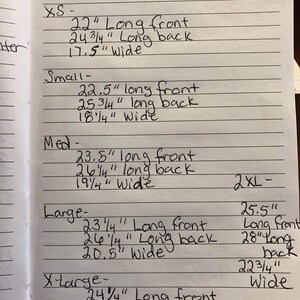 XS -
22" Long front
24 3/4" Long back
17.5" Wide
Small -
22.5" long front
25 3/4" long back
18 1/4" Wide
Med -
23.5" long front
26 1/4" long back
19 1/4" Wide
Large -
23 1/4" Long front
26 1/4" Long back
20.5" Wide
X-Large -
24 1/4" Long front
2XL -
25.5"
Long front
28" Long
back
22 3/4"
Wide